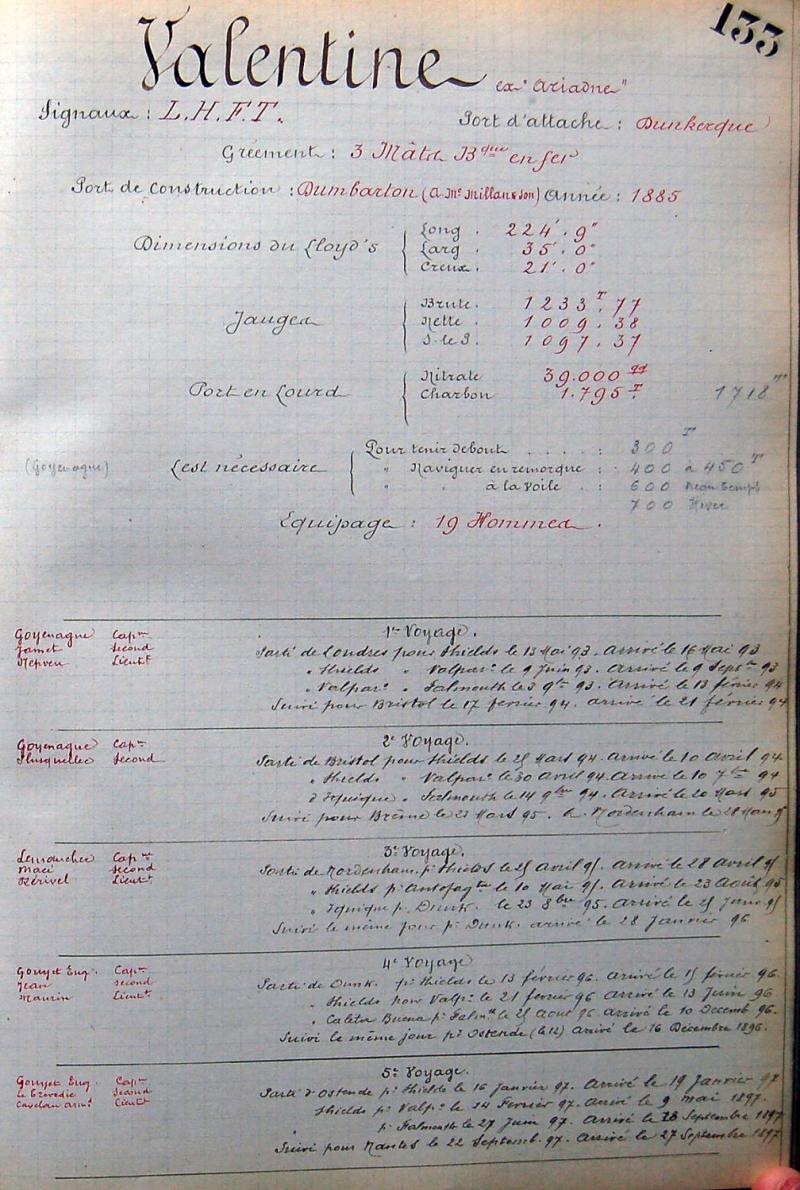 133
Valentine ex "Ariadne"
Signaux : L.H.F.T. Port d'attache : Dunkerque
Gréement : 3 Mâts Bque en fer
Port de Construction : Dumbarton (A. Mc Millan & Son) Année : 1885
Dimensions du Lloyd's
Long . 224'. 9"
Larg . 35'. 0"
Creux . 21'. 0"
Jauges
Brute . 1233T. 77
Nette . 1009. 38
S. le P. 1097. 37
Port en Lourd
Nitrate 39.000 qx
Charbon 1.795 T. 1718 Tx
(Goyenague) Lest nécessaire
Pour tenir debout . . . . : 300 T
" Naviguer en remorque : 400 à 450 T
" " à la Voile . : 600 Beau temps
700 Hiver
Equipage : 19 Hommes .
1er Voyage.
Goyenague Capne
Jamet Second
Nepveu Lieutt
Parti de Londres pour Shields le 13 Mai 93. Arrivé le 16 Mai 93
" Shields " Valparo le 9 Juin 93. Arrivé le 9 Septbre 93
" Valparo " Falmouth le 3 9bre 93. Arrivé le 13 février 94
Suivi pour Bristol le 17 février 94. arrivé le 21 février 94
2e Voyage.
Goyenague Capne
Second
Parti de Bristol pour Shields le 25 Mars 94. Arrivé le 10 Avril 94
" Shields " Valparo le 30 Avril 94. Arrivé le 10 7bre 94
d'Iquique " Falmouth le 14 9bre 94. Arrivé le 20 Mars 95
Suivi pour Brême le 23 Mars 95. A. Nordenham le 28 Mars 95
3e Voyage.
Lemouchec Capne
Macé Second
Kérivel Lieutt
Parti de Nordenham pr Shields le 25 Avril 95. Arrivé le 28 Avril 95
" Shields pr Antofagta le 10 Mai 95. Arrivé le 23 Août 95
" Iquique pr Dunk. le 23 8bre 95. Arrivé le 25 95
Suivi le même jour pr Dunk. arrivé le 28 Janvier 96
4e Voyage
Gouyet Eug. Capne
Jean Second
Maurin Lieutt
Parti de Dunk. pr Shields le 13 février 96. Arrivé le 15 février 96.
" Shields pour Valpo le 21 février 96 Arrivé le 13 Juin 96
" Caleta Buena pr Falmth le 25 Août 96 Arrivé le 10 Decemb 96.
Suivi le même jour pr Ostende (le 12) Arrivé le 16 Décembre 1896.
5e Voyage.
Gouyet Eug. Capne
Le Trévédic Second
Lieutt
Parti d'Ostende pr Shields le 16 Janvier 97. Arrivé le 19 Janvier 97
Shields pr Valpo le 14 Fevrier 97. Arrivé le 9 mai 1897.
" pr Falmouth le 27 Juin 97. Arrivé le 28 Septembre 1897
Suivi pour Nantes le 22 Septemb. 97. Arrivé le 27 Septembre 1897